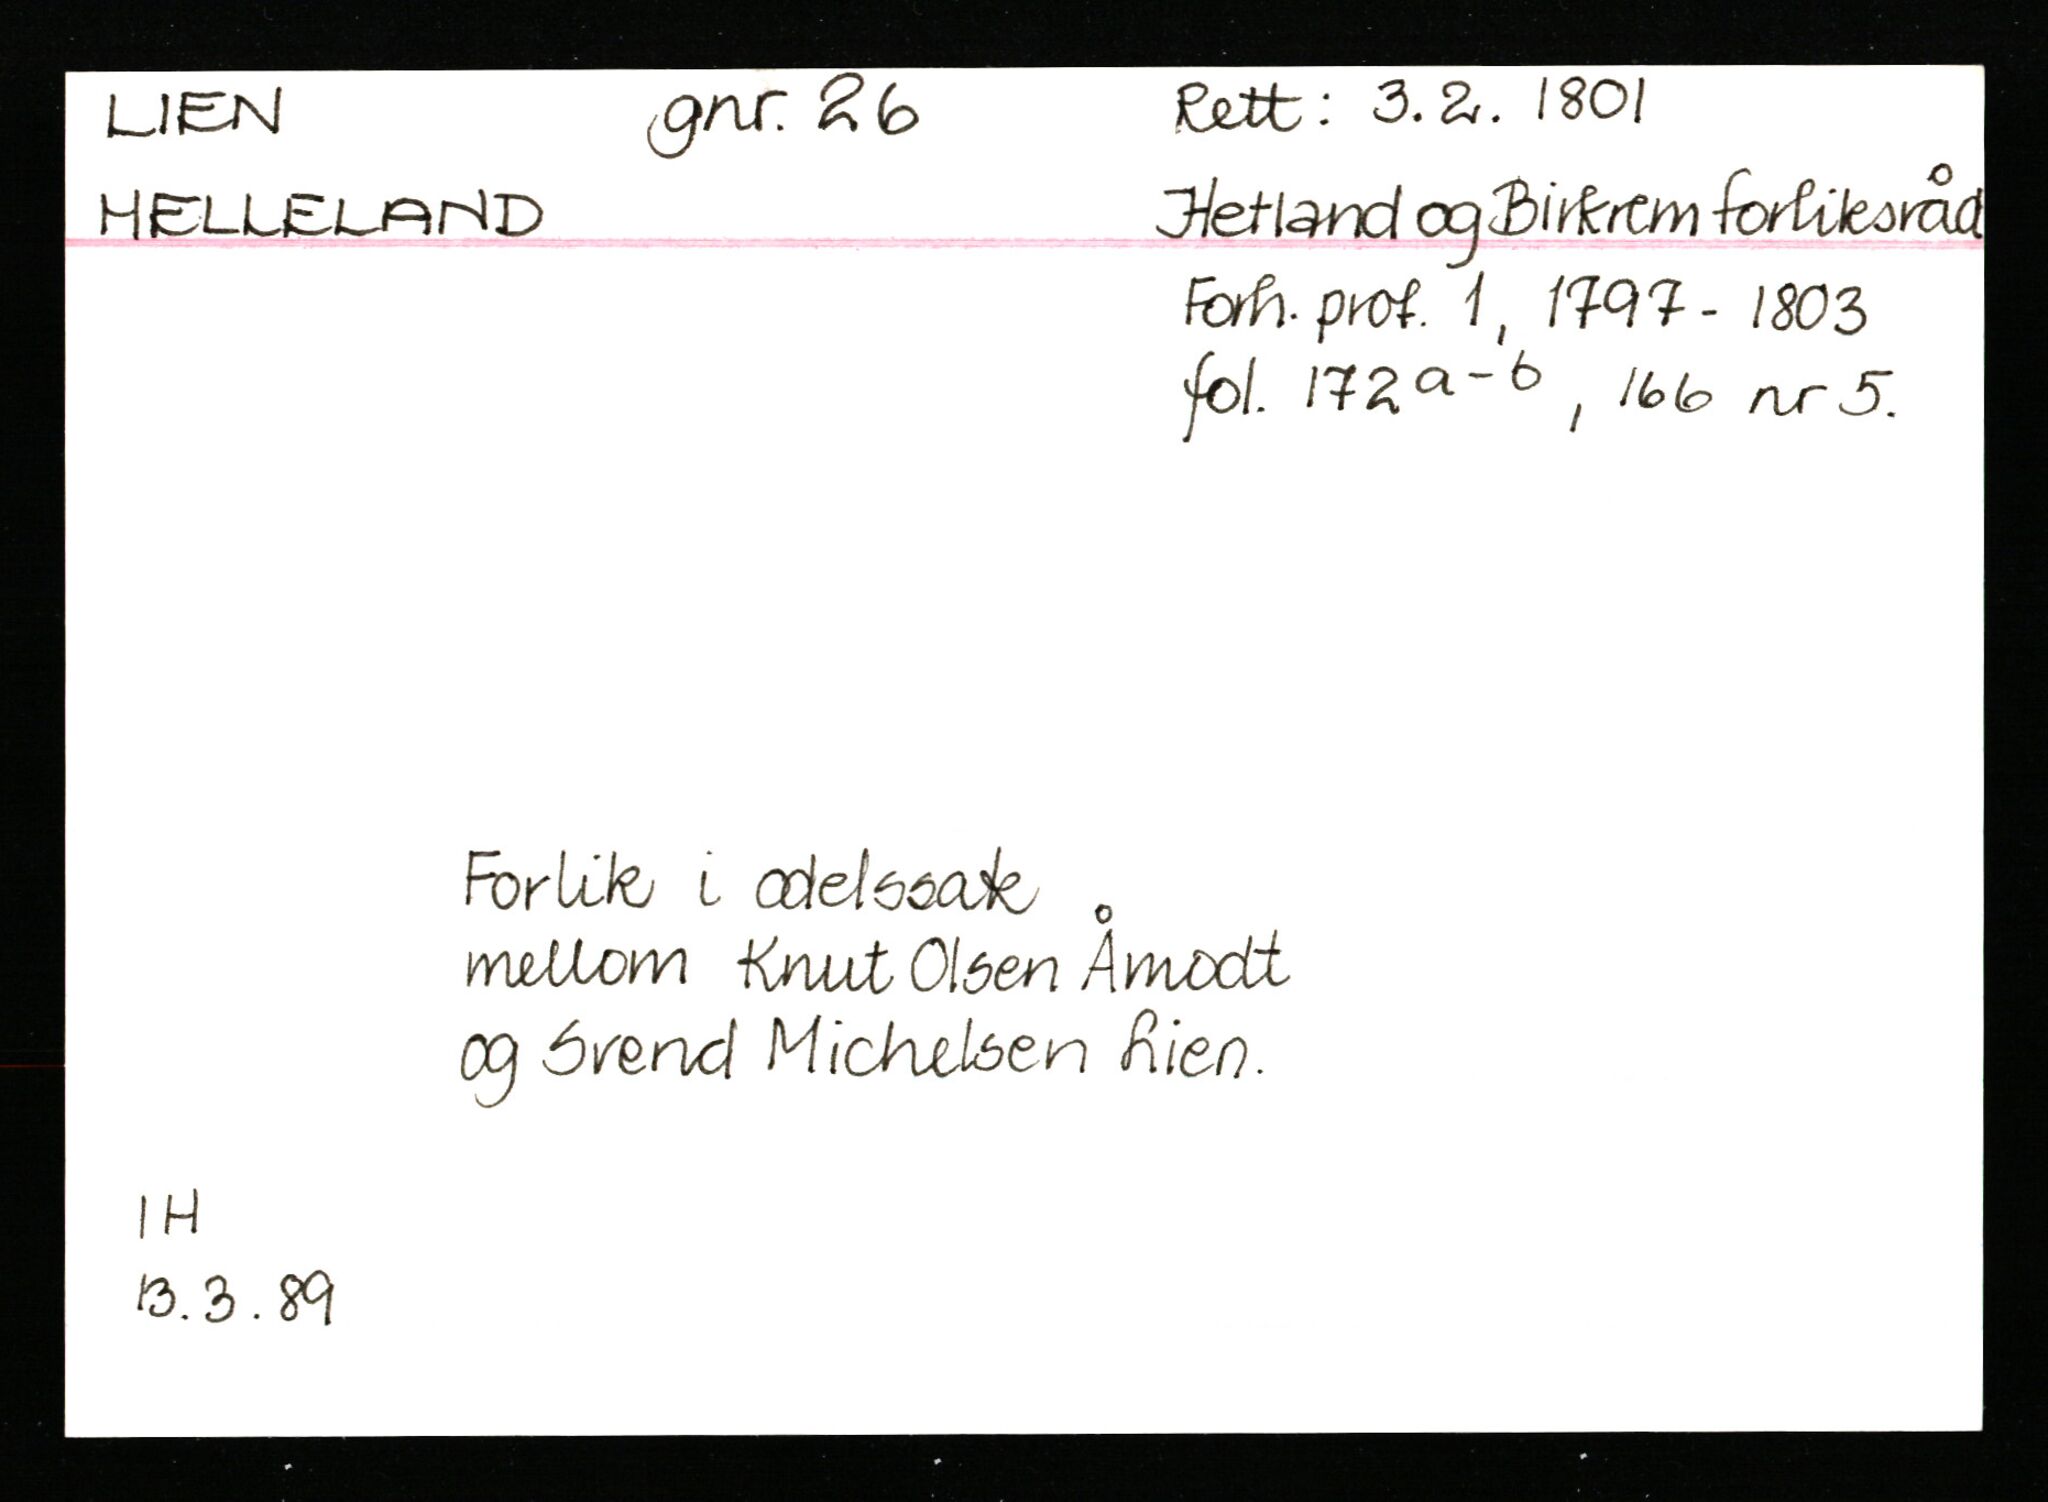 LIEN gnr. 26 Rett: 3.2. 1801
HELLELAND Hetland og Birkrem forliksråd
Forh. prot. 1, 1797-1803
fol. 172 a-b, 166 nr 5.
Forlik i odelssak
mellom Knut Olsen Åmodt
og Svend Michelsen Lien.
IH
13.3.89